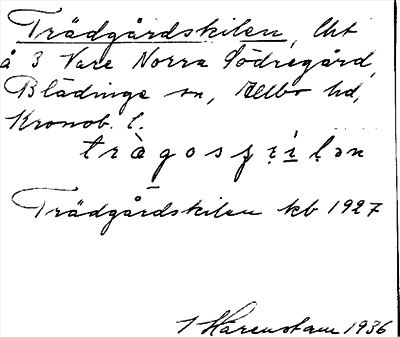 Trädgårdskilen, Äst
å 3 Vare Norra Södregård,
Blädinge sn, Allbo hd,
Kronob. l.
Trädgårdskilen kb 1927
1 Härenstam 1936